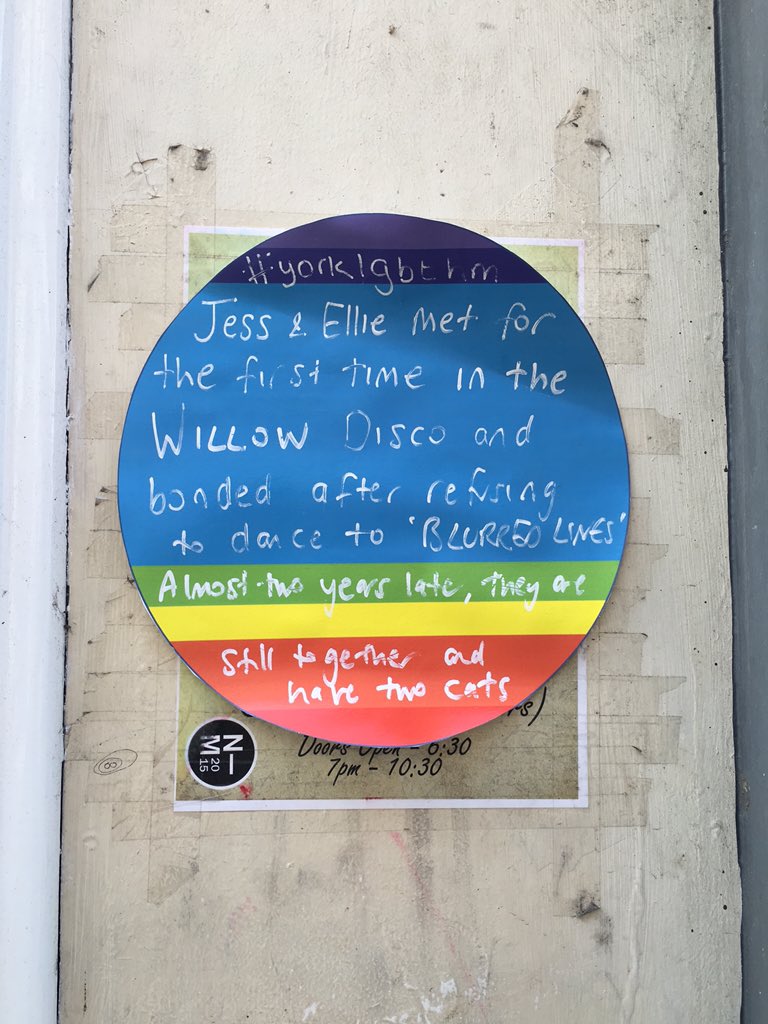 #yorklgbthm
Jess & Ellie met for
the first time in the
WILLOW DISCO and
bonded after refusing
to dance to 'BLURRED LINES'
Almost two years late, they are
still together and
have two cats
Doors Open - 6:30
7pm - 10:30
NIM
2015
8